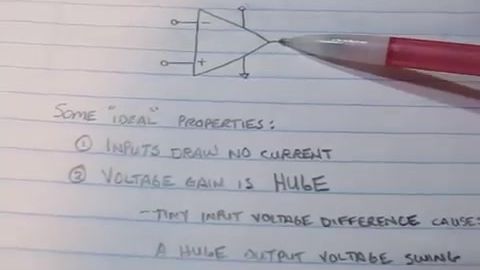 -
+
SOME "IDEAL" PROPERTIES:
① INPUTS DRAW NO CURRENT
② VOLTAGE GAIN IS HUGE
- TINY INPUT VOLTAGE DIFFERENCE CAUSES
A HUGE OUTPUT VOLTAGE SWING